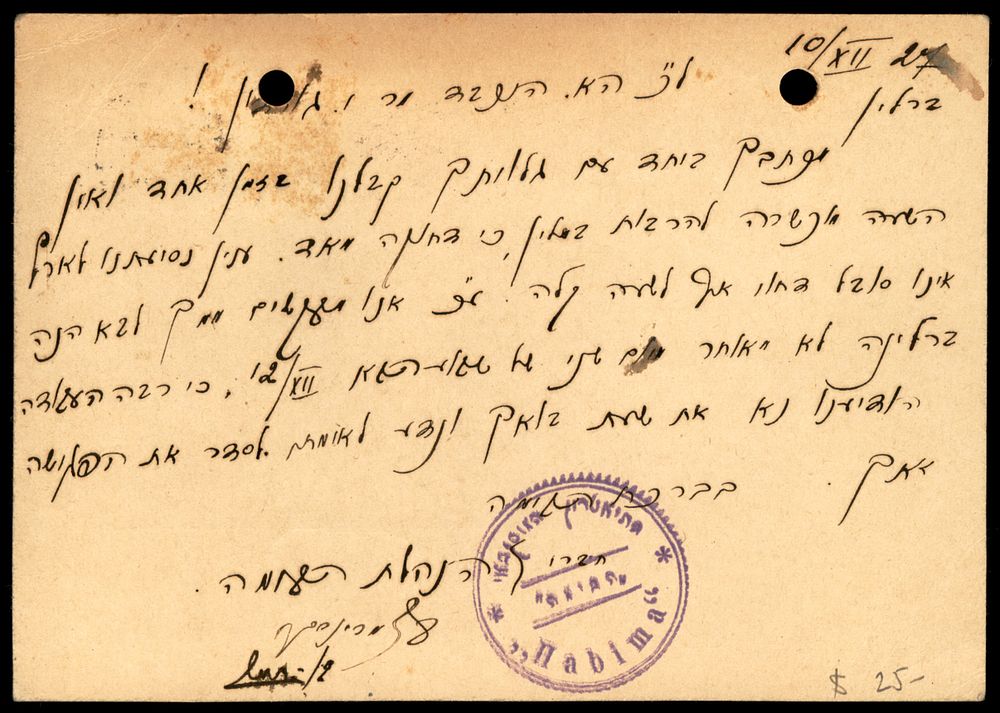 10/XII 27
ברלין
לכ' הא. הנכבד מר י. !
מכתבך ביחד עם גלויתך קבלנו בזמן אחד ואין
השעה מכשרה להרבות במלין, כי דחוקה מאד. ענין נסיעתנו לא״י
אינו סובל דחוי אף לשעה קלה. ע״כ אנו מבקשים ממך לבא הנה
ברלינה לא יאוחר מיום שני של שבוע הבא 12/XII, כי רבה העבודה
הודיענו נא את שעת בואך ונדע לסדר את הפגישה
אתך. בברכת הבימה
חברי הנהלת הבימה
"הבימה"
„Habima"
$ 25-